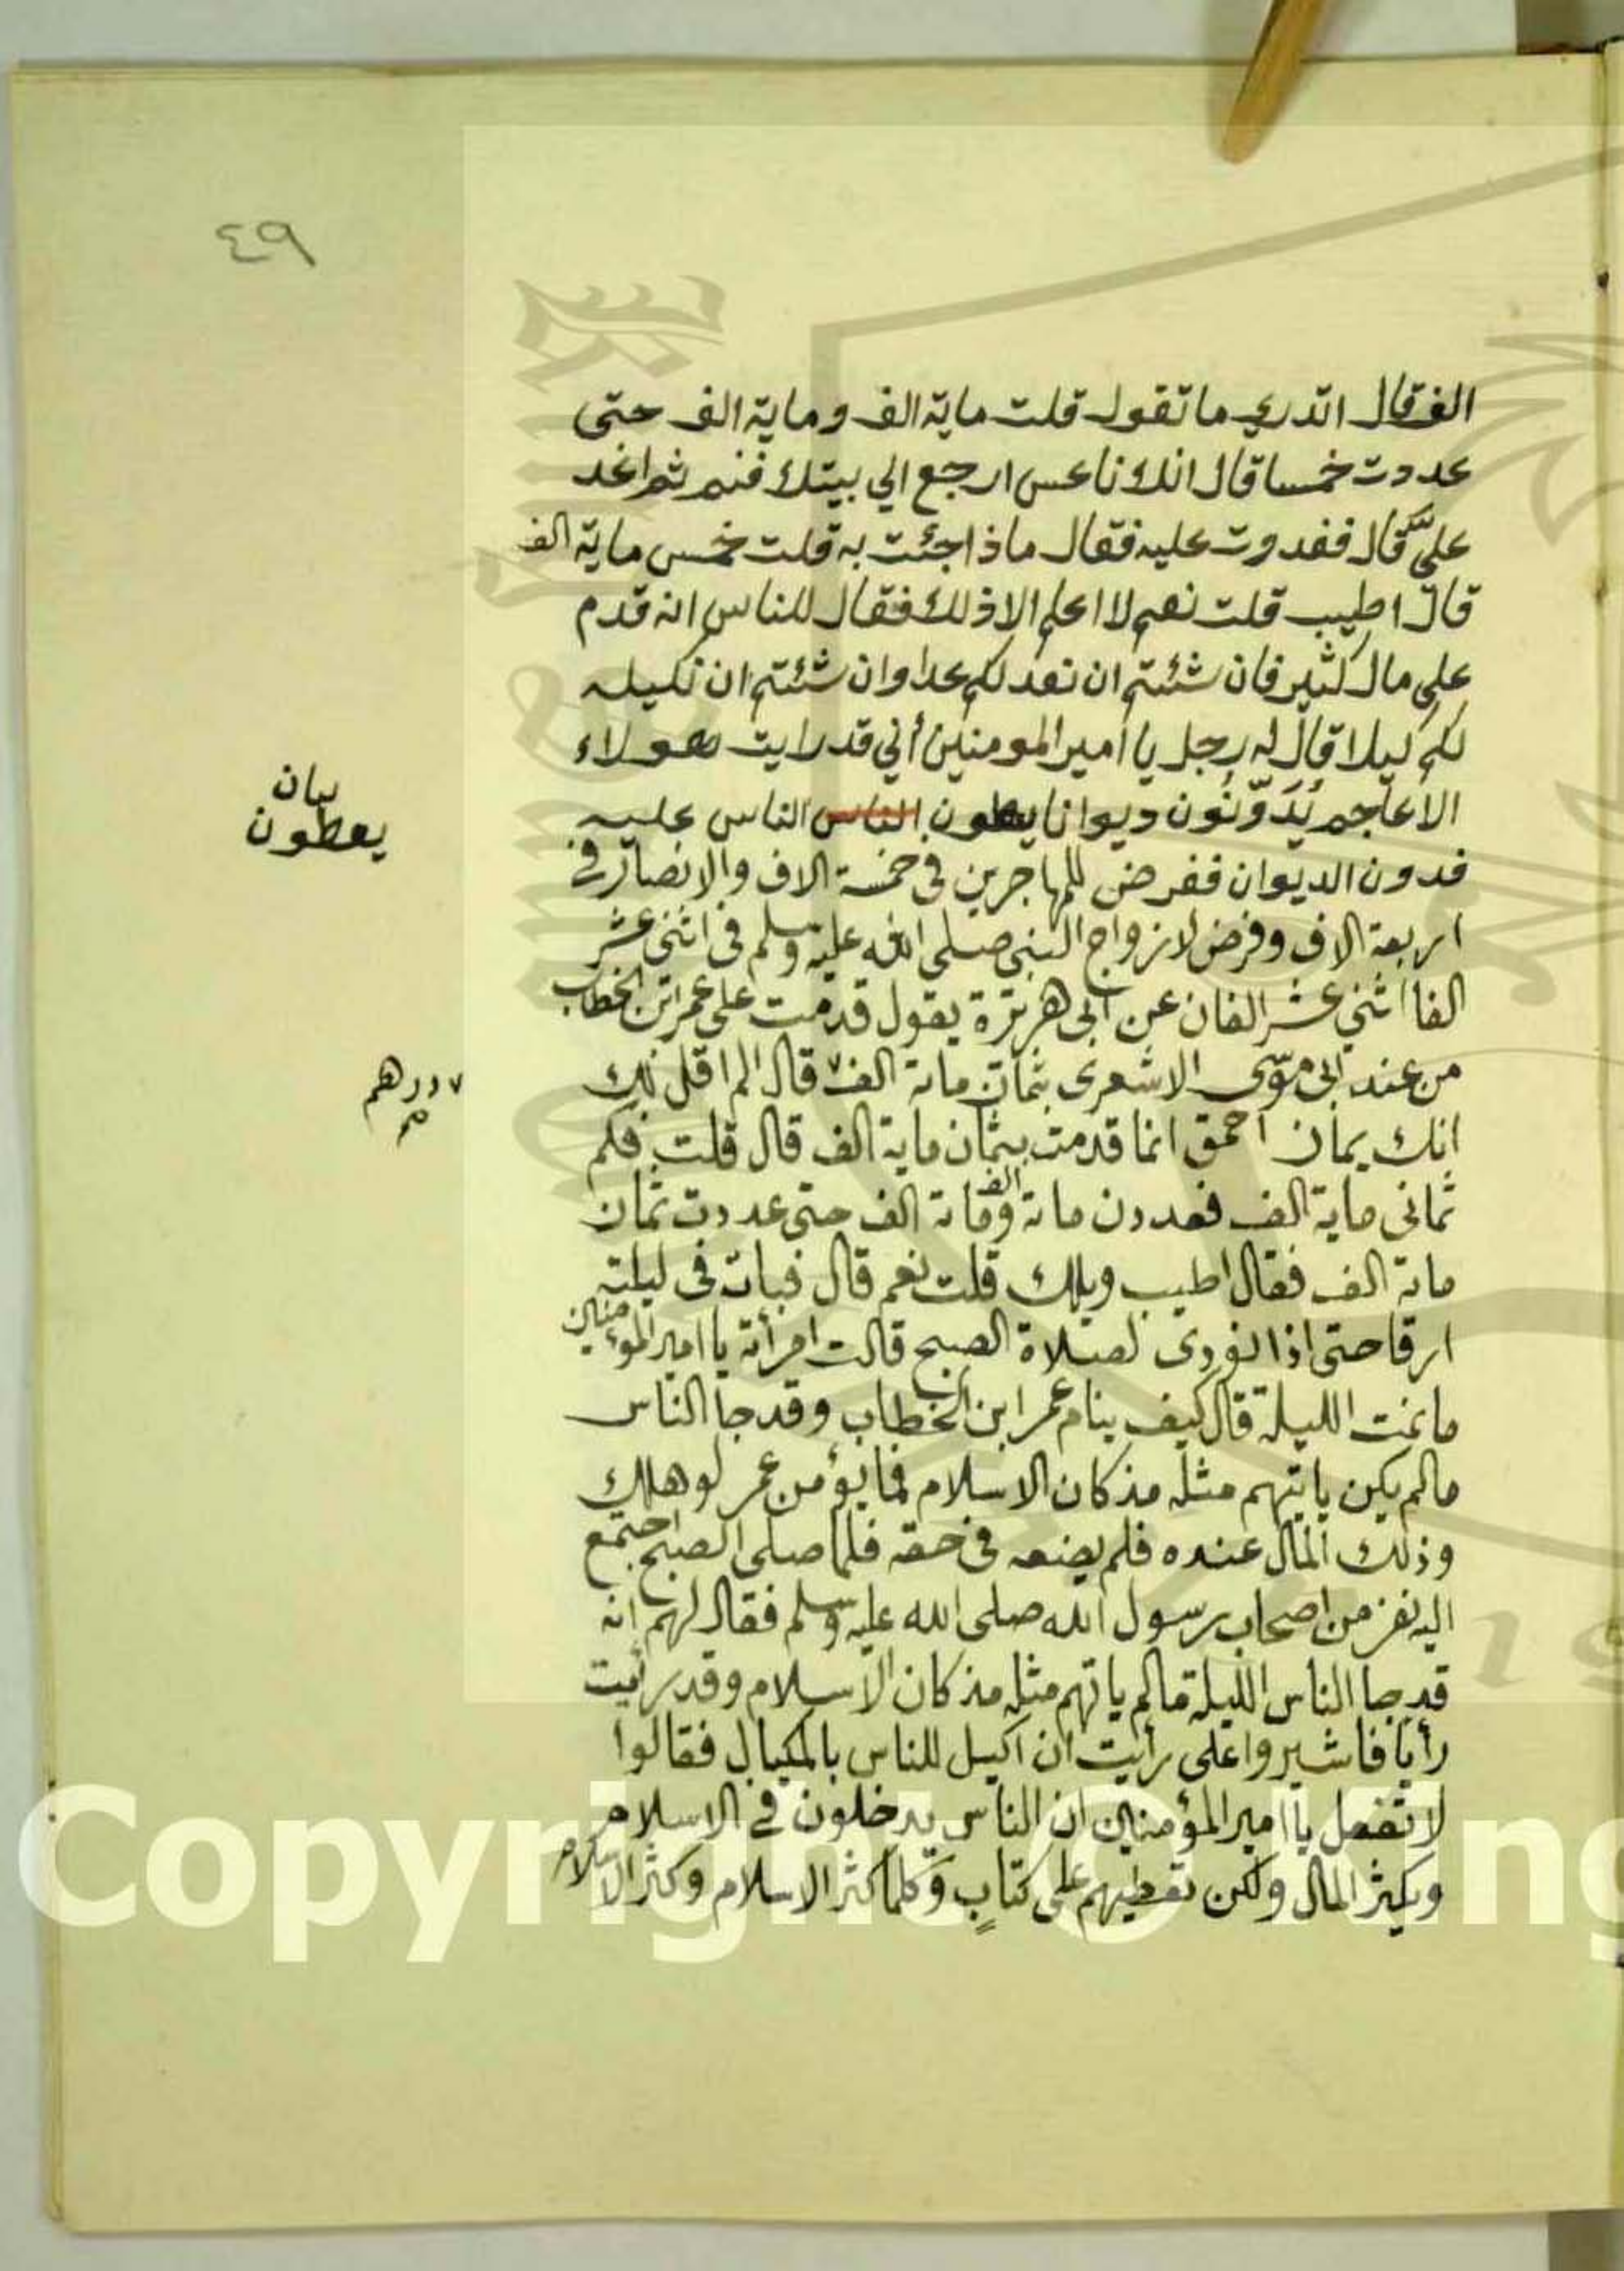 ٤٩
الف قال اتدري ما تقول قلت ماية الف وماية الف حتى
عددت خمسا قال انك ناعس ارجع الي بيتك فنم ثم اغد
عليّ قال فغدوت عليه فقال ماذا جئت به قلت خمس ماية الف
قال اطيب قلت نعم لا اعلم الا ذلك فقال للناس انه قدم
علي مال كثير فان شئتم ان نعد لكم عدا وان شئتم ان نكيله
لكم كيلا قال له رجل يا امير المومنين أني قد رايت هولاء
الاعاجم يُدَوّنُون ديوانا يعطون الناس الناس عليه
بيان
يعطون
فدون الديوان ففرض للمهاجرين في خمسة الاف والانصار في
اربعة الاف وفرض لازواج النبي صلى الله عليه وسلم في اثني عشر
الفا اثني عشر الفان عن ابي هريرة يقول قدمت على عمر ابن الخطاب
من عند ابي موسى الاشعرى بثمان ماىة الف٧ قال الم اقل لك
٧ درهم
انك يمان احمق انما قدمت بيثمان ماية الف قال قلت فكم
ثمانى ماية الف فعددن ماىة الف وماىة الف حتى عددت ثمان
ماىة الف فقال اطيب ويلك قلت نعم قال فبات في ليلته
ارقا حتى اذا نودى لصلاة الصبح قالت امرأته يا امير المؤمنين
ما نمت الليلة قال كيف ينام عمر ابن الخطاب وقد جا الناس
مالم يكن ياتيهم مثله مذ كان الاسلام فما يؤمن عمر لو هلك
وذلك المال عنده فلم يضعه في حقه فلما صلى الصبح اجتمع
اليه نفر من اصحاب رسول الله صلى الله عليه وسلم فقال لهم انه
قد جا الناس الليلة ما لم ياتهم مثله مذ كان الاسلام وقد رأيت
رأيا فاشيروا على رأيت ان اكيل للناس بالمكيال فقالوا
لا تفعل يا امير المؤمنين ان الناس يدخلون في الاسلام
ويكثر المال ولكن نعطيهم على كتاب وكلما كثر الاسلام وكثر الاسلام
Copyright © King